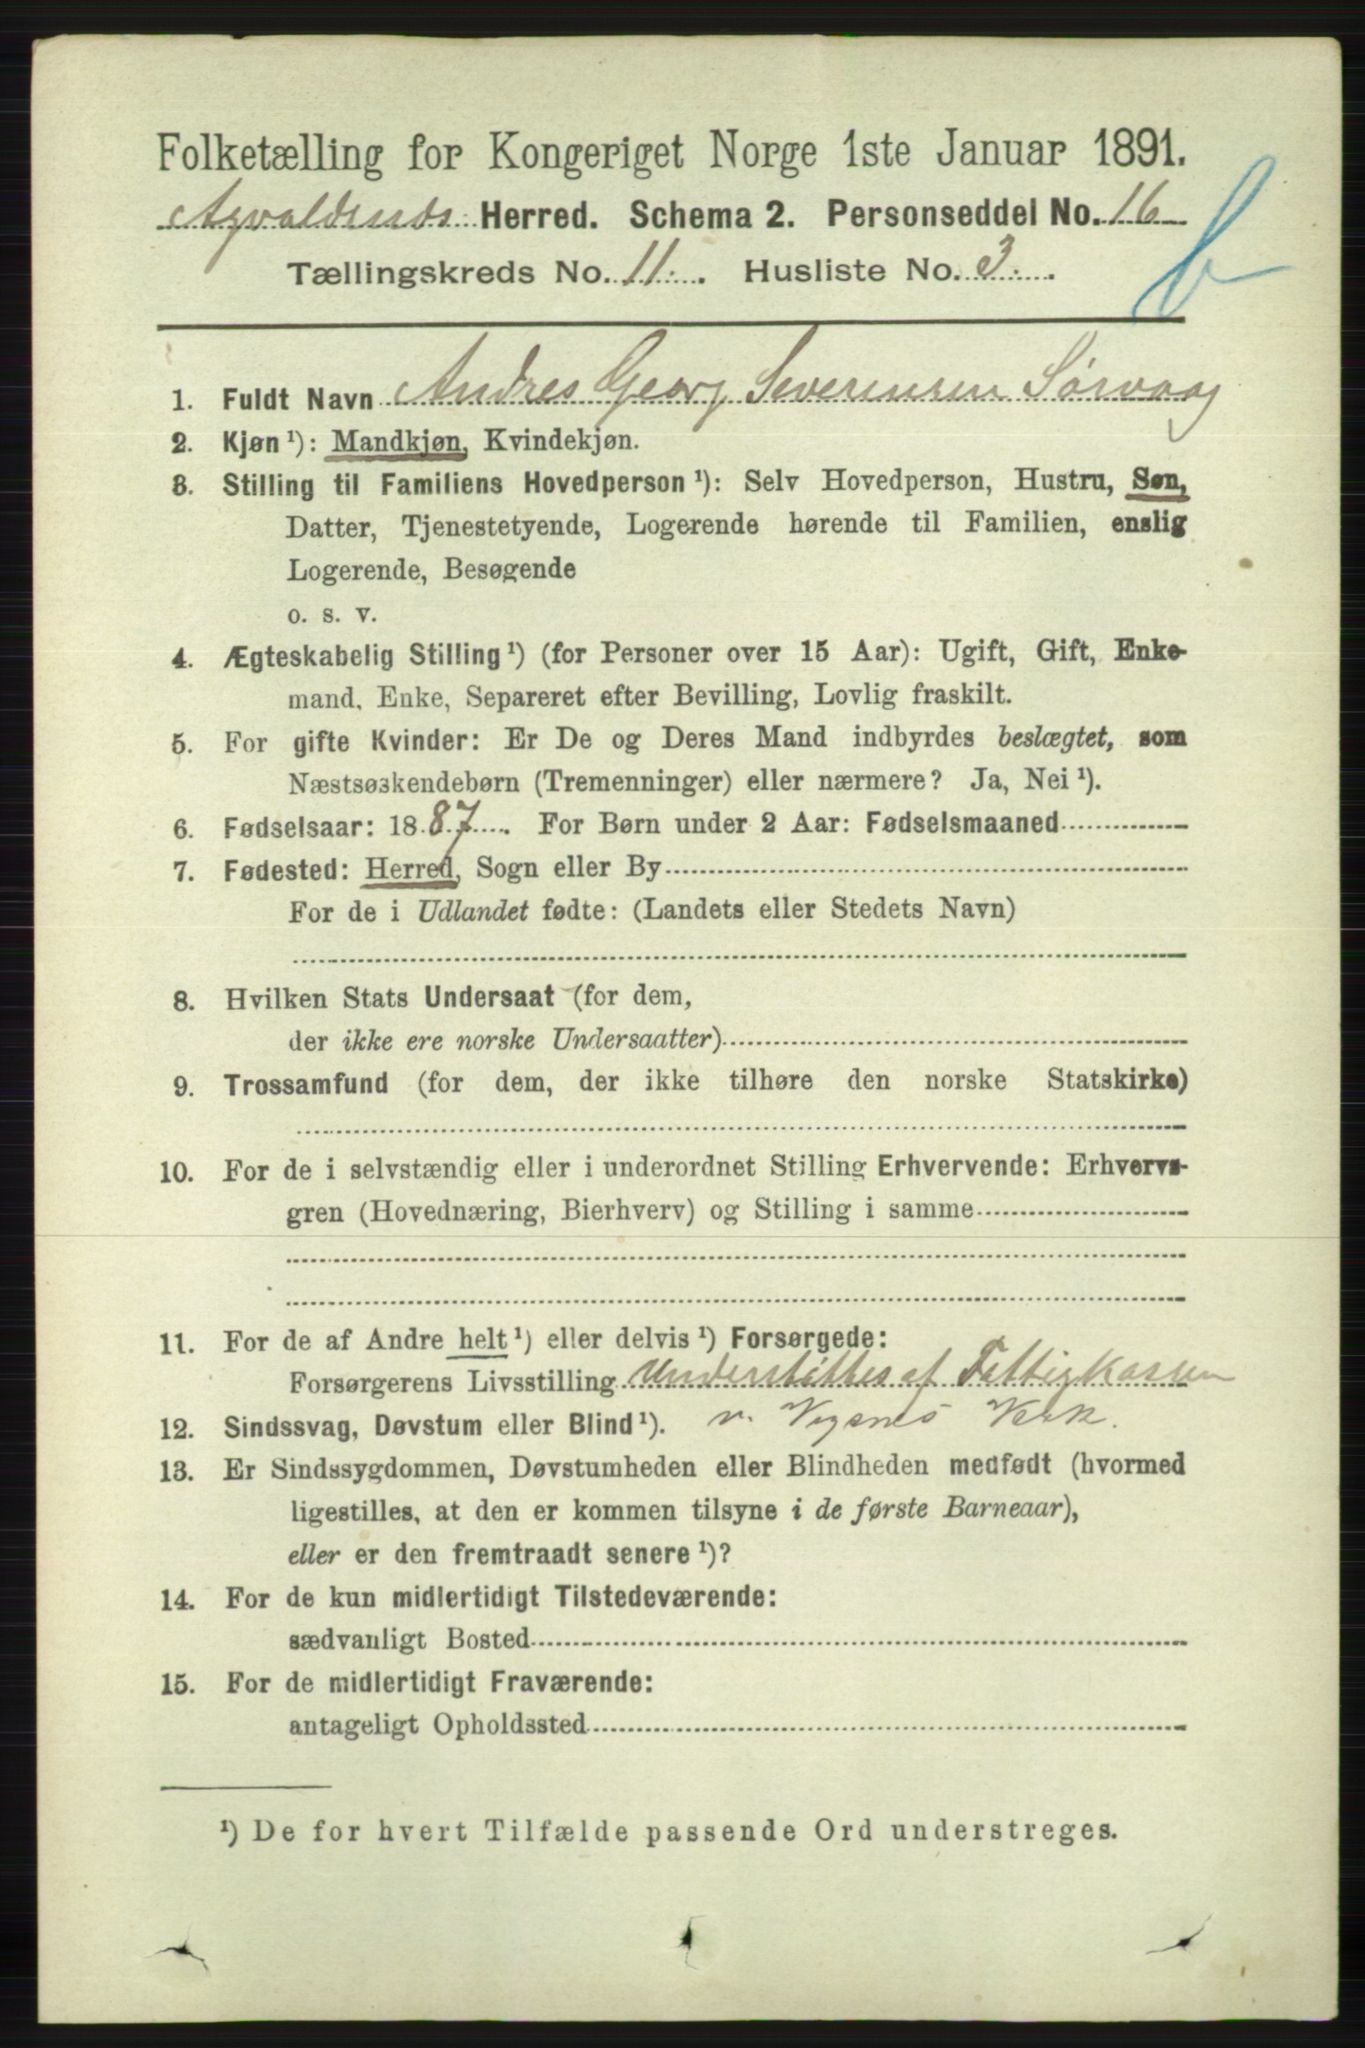 Folketælling for Kongeriget Norge 1ste Januar 1891.
Herred. Schema 2. Personseddel No. 16
Tællingskreds No. 11. Husliste No. 3.
b
1. Fuldt Navn Andres Georg Severinsen Sørvaag
2. Kjøn ¹): Mandkjøn, Kvindekjøn.
3. Stilling til Familiens Hovedperson ¹): Selv Hovedperson, Hustru, Søn,
Datter, Tjenestetyende, Logerende hørende til Familien, enslig
Logerende, Besøgende
o. s. v.
4. Ægteskabelig Stilling ¹) (for Personer over 15 Aar): Ugift, Gift, Enke-
mand, Enke, Separeret efter Bevilling, Lovlig fraskilt.
5. For gifte Kvinder: Er De og Deres Mand indbyrdes beslægtet, som
Næstsøskendebørn (Tremenninger) eller nærmere? Ja, Nei ¹).
6. Fødselsaar: 1887. For Børn under 2 Aar: Fødselsmaaned
7. Fødested: Herred, Sogn eller By
For de i Udlandet fødte: (Landets eller Stedets Navn)
8. Hvilken Stats Undersaat (for dem,
der ikke ere norske Undersaatter)
9. Trossamfund (for dem, der ikke tilhøre den norske Statskirke)
10. For de i selvstændig eller i underordnet Stilling Erhvervende: Erhvervs-
gren (Hovednæring, Bierhverv) og Stilling i samme
11. For de af Andre helt ¹) eller delvis ¹) Forsørgede:
Forsørgerens Livsstilling understøttes af Fattigkassen
12. Sindssvag, Døvstum eller Blind ¹). v. Vigsnes Verk.
13. Er Sindssygdommen, Døvstumheden eller Blindheden medfødt (hvormed
ligestilles, at den er kommen tilsyne i de første Barneaar),
eller er den fremtraadt senere ¹)?
14. For de kun midlertidigt Tilstedeværende:
sædvanligt Bosted
15. For de midlertidigt Fraværende:
antageligt Opholdssted
¹) De for hvert Tilfælde passende Ord understreges.